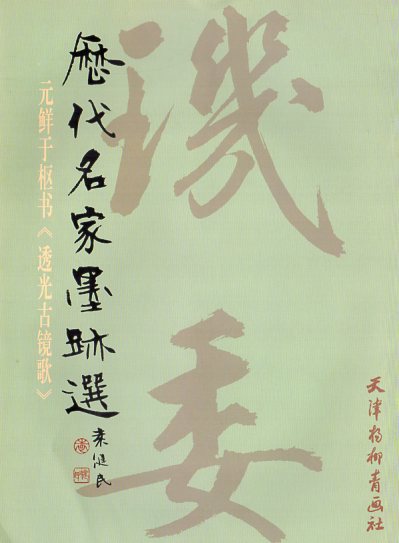 璣委
歷代名家墨跡選
袁健民
元鲜于枢书《透光古镜歌》
天津杨柳青画社